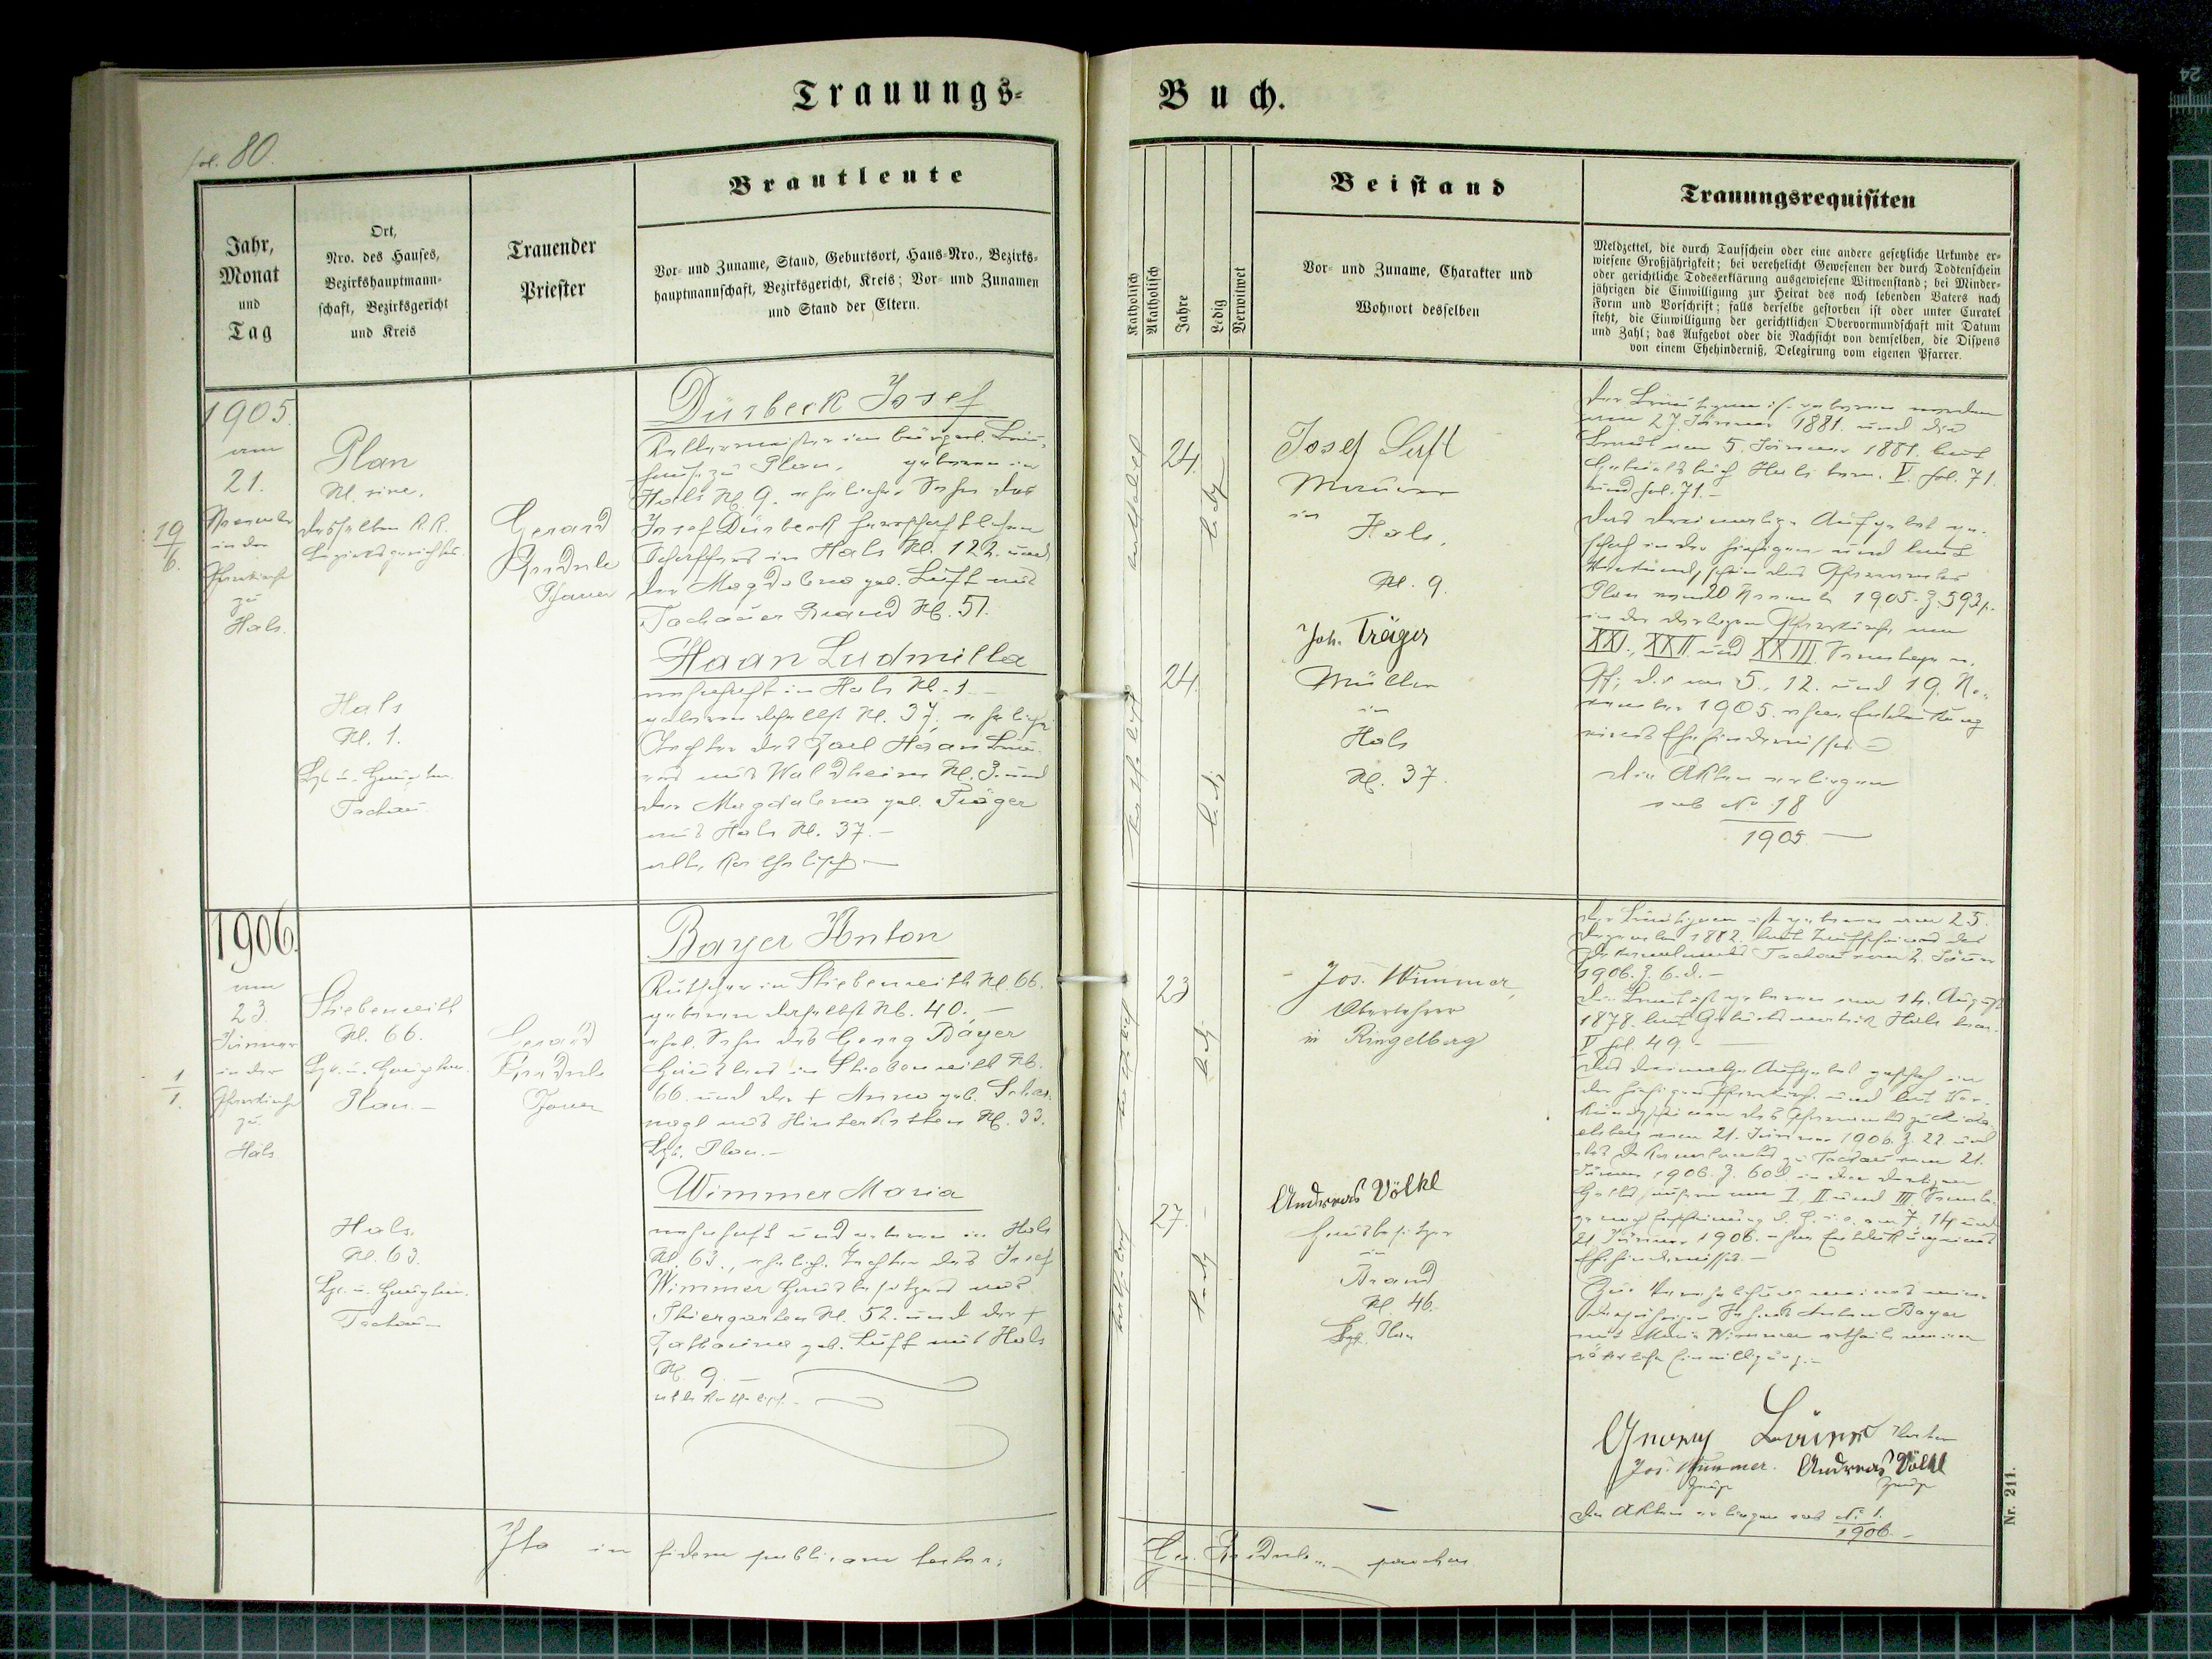 Trauungs-
Buch.
fol. 80.
Jahr,
Monat
und
Tag
Ort,
Nro. des Hauses,
Bezirkshauptmann-
schaft, Bezirksgericht
und Kreis
Trauender
Priester
Brautleute
Vor- und Zuname, Stand, Geburtsort, Haus-Nro., Bezirks-
hauptmannschaft, Bezirksgericht, Kreis; Vor- und Zunamen
und Stand der Eltern.
Katholisch
Akatholisch
Jahre
Ledig
Verwitwet
Beistand
Vor- und Zuname, Charakter und
Wohnort desselben
Trauungsrequisiten
Meldzettel, die durch Taufschein oder eine andere gesetzliche Urkunde er-
wiesene Großjährigkeit; bei verehelicht Gewesenen der durch Todtenschein
oder gerichtliche Todeserklärung ausgewiesene Witwenstand; bei Minder-
jährigen die Einwilligung zur Heirat des noch lebenden Vaters nach
Form und Vorschrift; falls derselbe gestorben ist oder unter Curatel
steht, die Einwilligung der gerichtlichen Obervormundschaft mit Datum
und Zahl; das Aufgebot oder die Nachsicht von demselben, die Dispens
von einem Ehehinderniß, Delegirung vom eigenen Pfarrer.
19
6.
1905.
am
21.
November
in der
Pfarrkirche
zu
Hals.
Plan
desselben K. K.
Bezirksgerichtes.
Hals
N. 1.
Tachau
Gerard
Pfarrer
Dürbeck Josef
Kellermeister im bürgerl. Bräu-
hause zu Plan, geboren in
Hals N. 9. ehelicher Sohn des
Josef Dürbeck herrschaftlichen
Schaffers in Hals N. 122. und
der Magdalena geb. Luft aus
Tachauer Brand N. 51.
Haan Ludmilla
wohnhaft in Hals N. 1.
geboren daselbst N. 37, eheliche
Tochter des Karl Haan
aus Waldheim N. 3. und
der Magdalena geb. Träger
aus Hals N. 37.-
alle katholisch
katholisch
24.
ledig
katholisch
24.
ledig
Josef Luft
Maurer
in
Hals,
N. 9.
Joh. Träger
Müller
in
Hals
N. 37.
Der Bräutigam ist geboren worden
am 27. Jänner 1881. und die
Braut am 5. Jänner 1881. laut
Geburtsbuch Hals tom. V. fol. 71.
und fol. 71.-
Das dreimalige Aufgebot ge-
schah in der hiesigen und laut
Verkündschein des Pfarramtes
Plan vom 20 November 1905. Z. 593/p.
in der dortigen Pfarrkirche am
XXI., XXII. und XXIII. Sonntage n.
Pf; d. i. am 5., 12. und 19. No-
vember 1905. ohne Entdeckung
eines Ehehindernisses
Die Akten erliegen
sub No 18
1905
1
1.
1906.
am
23.
Jänner
in der
Pfarrkirche
zu
Hals
Stiebenreith
N. 66.
Plan.-
Hals.
N. 63.
Tachau
Gerard
Pfarrer
Bayer Anton
Kutscher in Stiebenreith N. 66.
geboren daselbst N. 40.-
ehel. Sohn des Georg Bayer
in Stiebenreith N.
66. und der + Anna geb.
aus Hinterkotten N. 33.
Bzk. Plan.-
Wimmer Maria
wohnhaft und geboren in Hals
N. 63., ehelich. Tochter des Josef
Wimmer Hausbesitzers aus
Thiergarten N. 52. und der +
Katharina geb. Luft aus Hals
N. 9.-
alle katholisch.-
katholisch
23
ledig
katholisch
27.
ledig
- Jos. Wimmer,
Oberlehrer
in Ringelberg
Andreas Völkl
Hausbesitzer
in
Brand
N. 46.
Bzk. Plan
Der Bräutigam ist geboren am 25.
Dezember 1882. laut Taufscheines des
Tachau vom 2. Jänner
1906. Z. 6. d.-
Die Braut ist geboren am 14. August
1878. laut Geburtsmatrik Hals tom.
V fol. 49.-
Das dreimalige Aufgebot geschah in
der hiesigen Pfarrkirche und laut Ver-
kündscheinen des Pfarramtes zu
vom 21. Jänner 1906. Z. 22. und
des zu Tachau vom 21.
Jänner 1906. Z. 60 d. in den dortigen
am I. II und III Sonnta-
ge nach Erscheinung d. H. i. e. am 7. 14 und
21. Jänner 1906. ohne Entdeckung eines
Ehehindernisses.-
Zur Verehelichung meines min-
derjährigen Sohnes Anton Bayer
mit Maria Wimmer ertheile meine
väterliche Einwilligung.-
Georg Vater
Jos. Wimmer. Andreas Völkl
Zeuge Zeuge
Die Akten erliegen sub No 1.
1906.-
Ita in fidem publicam testor:
Ger. parochus
Nr. 211.